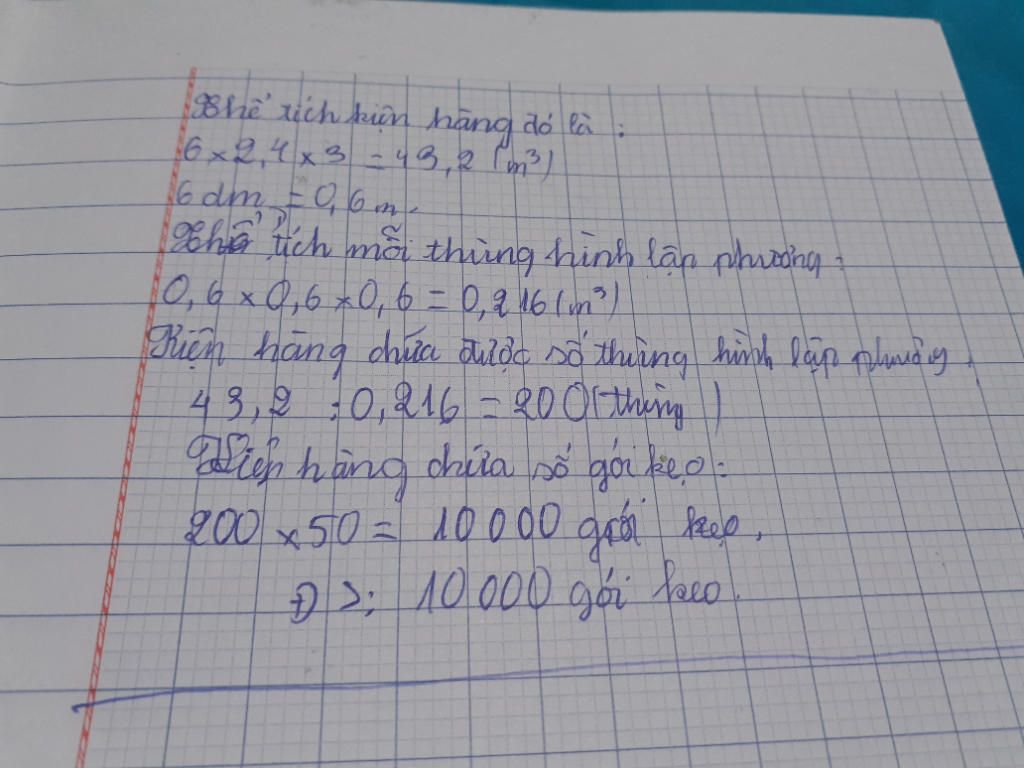 Thể tích kiện hàng đó là :
6 × 2,4 × 3 = 43,2 (m³)
6 dm = 0,6 m.
Thể tích mỗi thùng hình lập phương :
0,6 × 0,6 × 0,6 = 0,216 (m³)
Kiện hàng chứa được số thùng hình lập phương.
43,2 : 0,216 = 200 (thùng)
hàng chứa số gói kẹo :
200 × 50 = 10 000 gói kẹo.
Đ>; 10 000 gói keo.